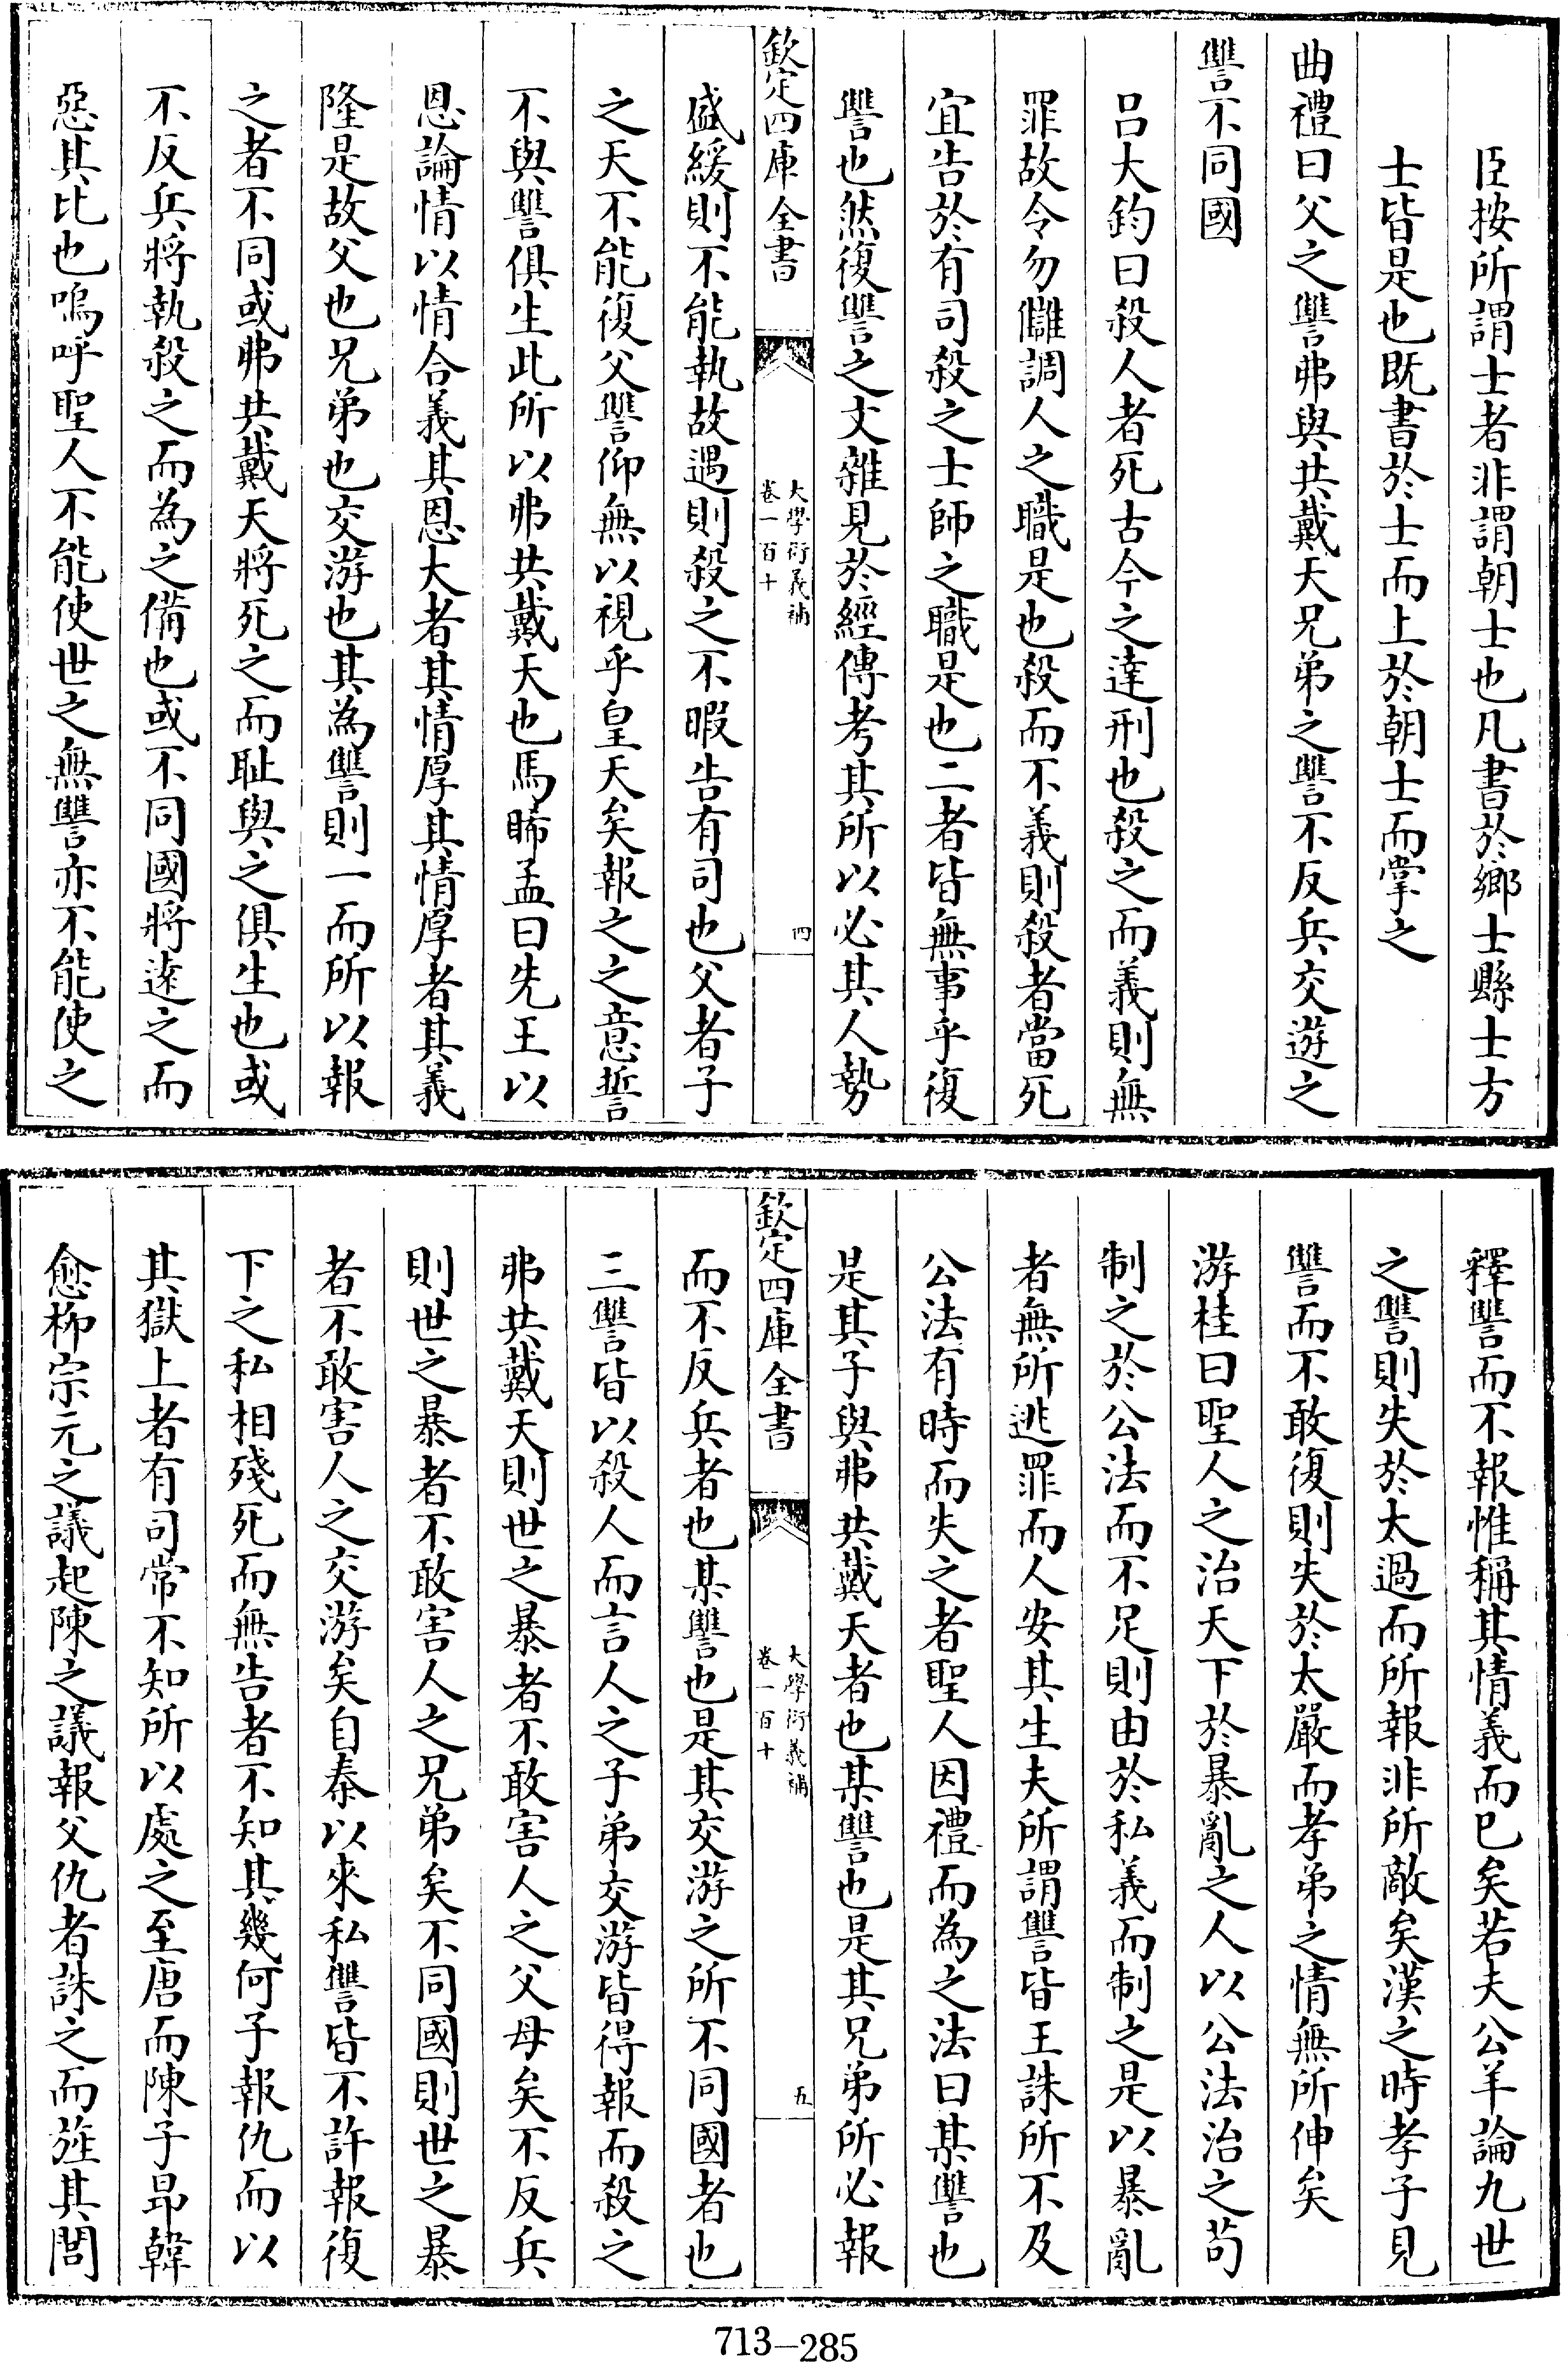 臣按所謂士者非謂朝士也凡書於鄉士縣士方
士皆是也既書於士而上於朝士而掌之
曲禮曰父之讐弗與共戴天兄弟之讐不反兵交遊之
讐不同國
吕大鈞曰殺人者死古今之達刑也殺之而義則無
罪故令勿讎調人之職是也殺而不義則殺者當死
宜告於有司殺之士師之職是也二者皆無事乎復
讐也然復讐之文雜見於經傳考其所以必其人勢
欽定四庫全書
大學衍義補
卷一百十
四
盛緩則不能執故遇則殺之不暇告有司也父者子
之天不能復父讐仰無以視乎皇天矣報之之意誓
不與讐俱生此所以弗共戴天也馬晞孟曰先王以
恩論情以情合義其恩大者其情厚其情厚者其義
隆是故父也兄弟也交游也其為讐則一而所以報
之者不同或弗共戴天將死之而耻與之俱生也或
不反兵將執殺之而為之備也或不同國將逺之而
惡其比也嗚呼聖人不能使世之無讐亦不能使之
釋讐而不報惟稱其情義而已矣若夫公羊論九世
之讐則失於太過而所報非所敵矣漢之時孝子見
讐而不敢復則失於太嚴而孝弟之情無所伸矣
游桂曰聖人之治天下於暴亂之人以公法治之苟
制之於公法而不足則由於私義而制之是以暴亂
者無所逃罪而人安其生夫所謂讐皆王誅所不及
公法有時而失之者聖人因禮而為之法曰某讐也
是其子與弗共戴天者也某讐也是其兄弟所必報
欽定四庫全書
大學衍義補
卷一百十
五
而不反兵者也某讐也是其交游之所不同國者也
三讐皆以殺人而言人之子弟交游皆得報而殺之
弗共戴天則世之暴者不敢害人之父母矣不反兵
則世之暴者不敢害人之兄弟矣不同國則世之暴
者不敢害人之交游矣自秦以來私讐皆不許報復
下之私相殘死而無告者不知其幾何子報仇而以
其獄上者有司常不知所以處之至唐而陳子昂韓
愈柳宗元之議起陳之議報父仇者誅之而旌其閭
713-285